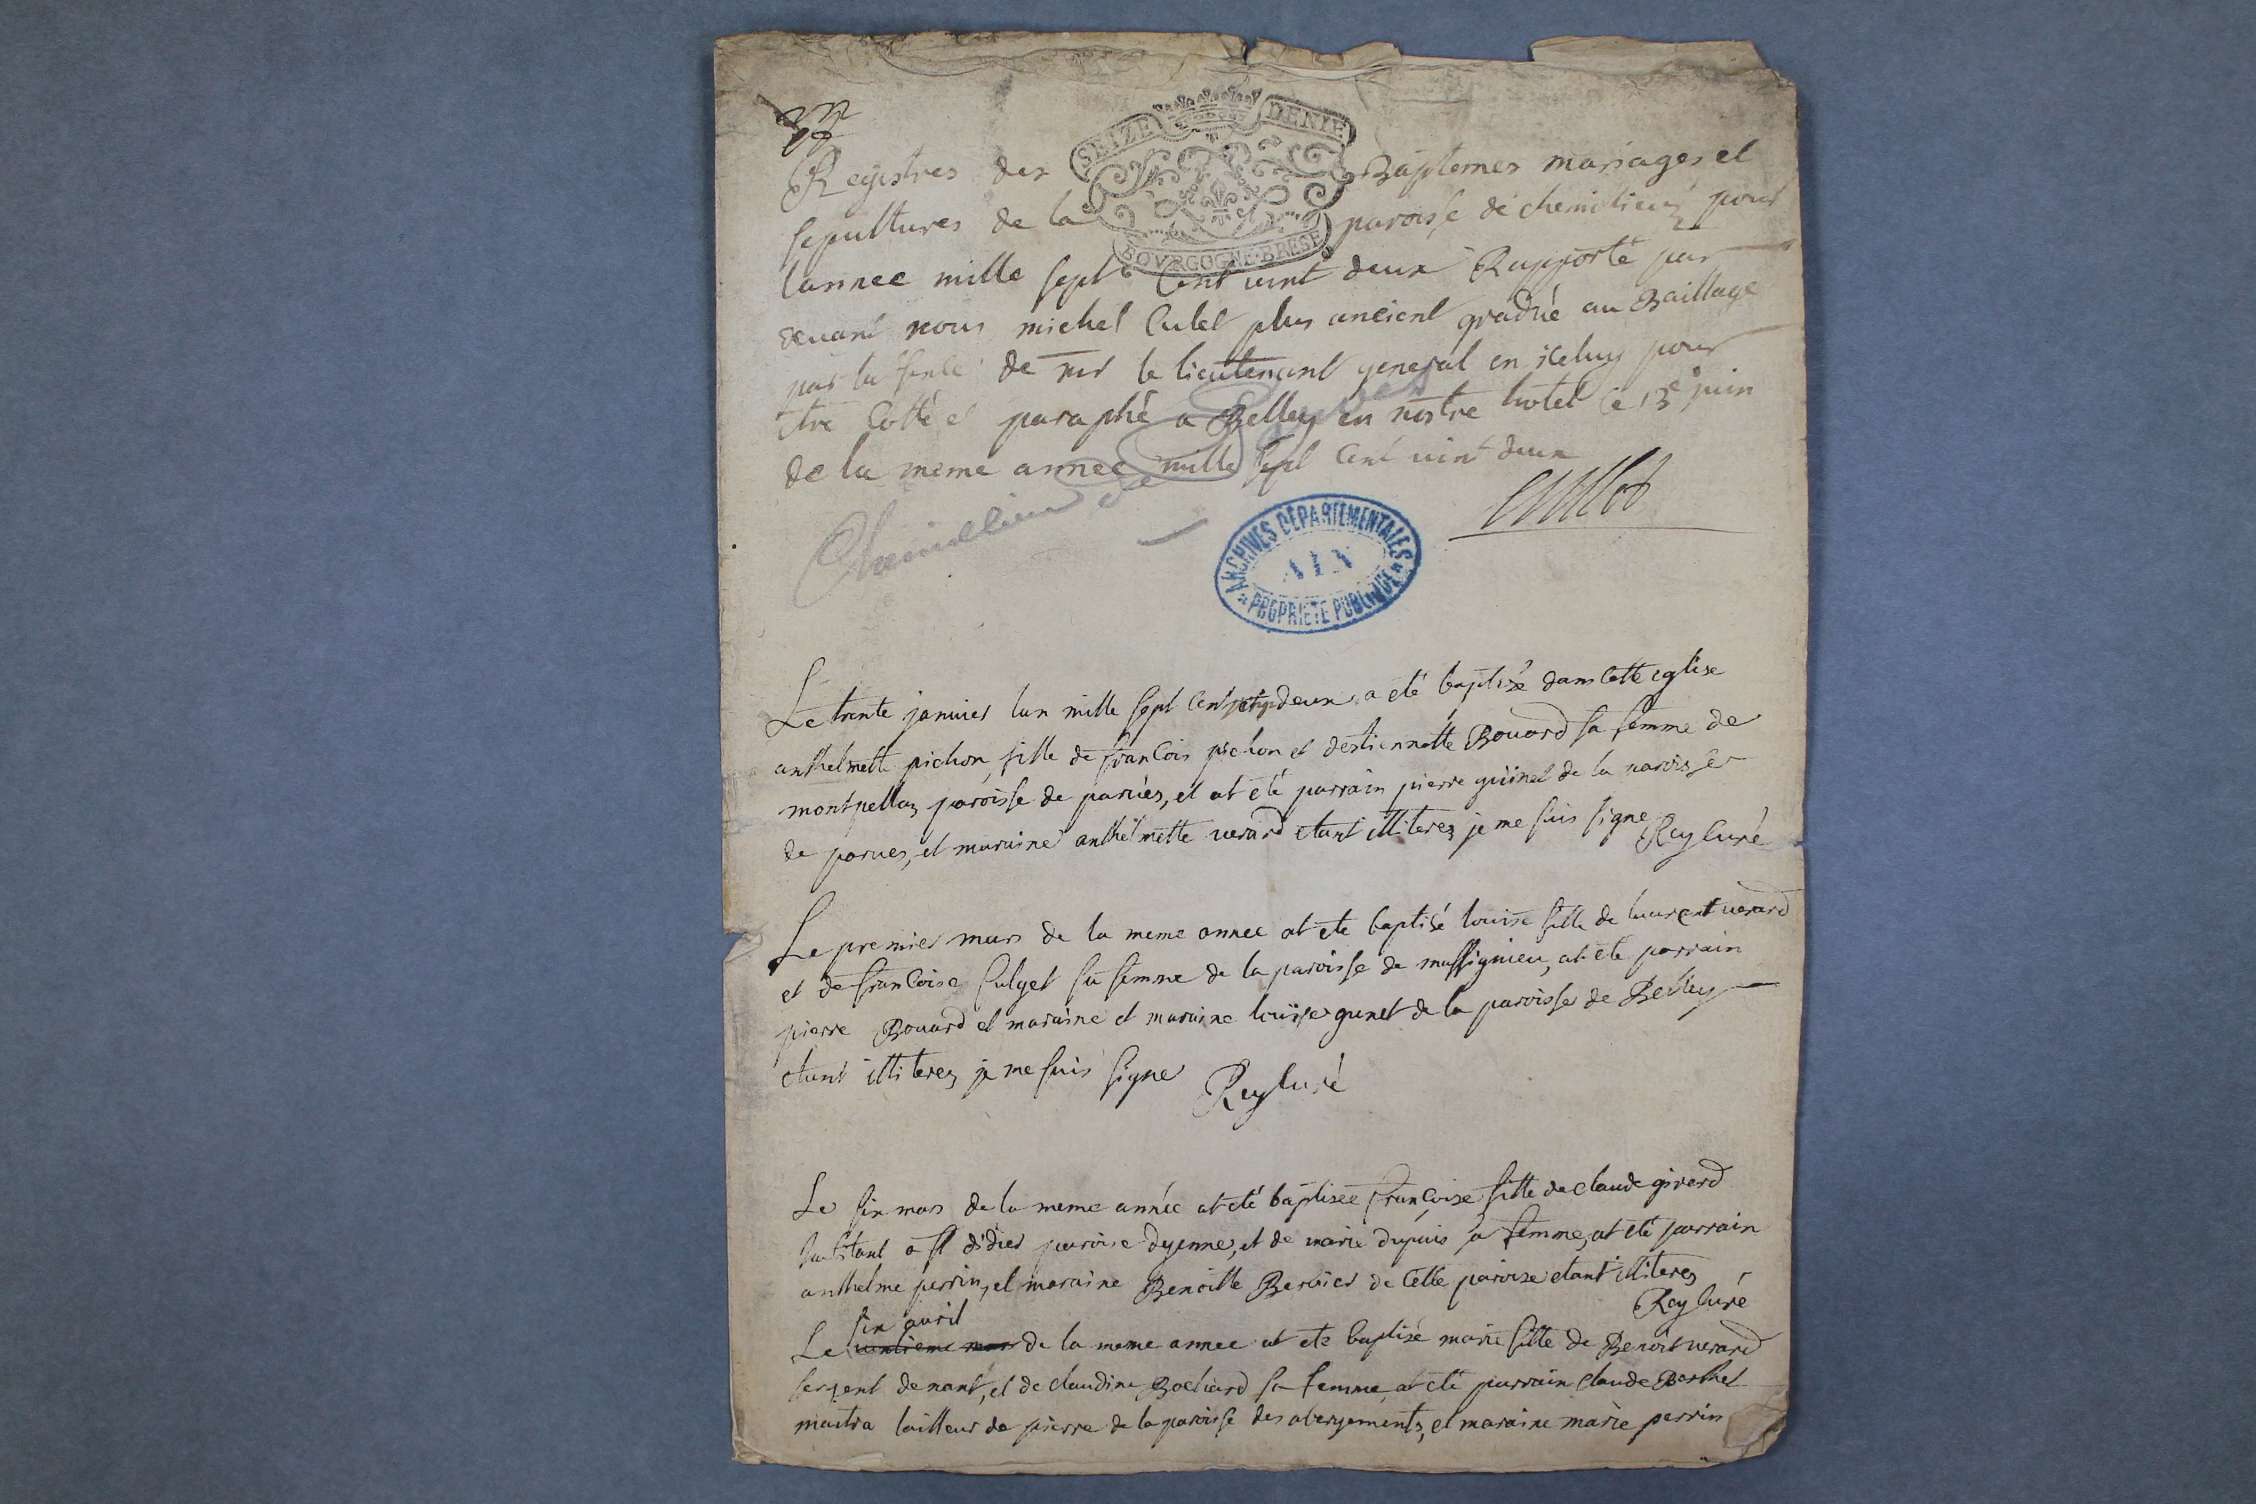 SEIZE DENIE
Registres des Baptemes mariages et
sepultures de la paroisse de chemilieu pour
lannee mille sept Cent vint deux Rapporté par
devant nous michel Cutet plus ancient gradué au Baillage
par la de mr le lieutenant general en iceluy pour
etre Cotté et paraphé a Belley en nostre hotel ce 13e juin
de la meme annee mille sept Cent vint deux
BOVRGOGNE·BRESE
Cullet
Chemillieu
ARCHIVES DEPARTEMENTALES
AIN
PROPRIETE PUBLIQUE
Le trente janvier lan mille sept Cent deux a eté baptisé dans Cette eglise
anthelmette pichon, fille de francois pichon et destiennette Bouard sa femme de
montpellaz paroisse de parves, et at eté parrain pierre guinet de la paroisse
de parves, et maraine anthelmette verard etant illiterez je me suis signe
Rey Curé
Le premier mars de la meme annee at ete baptisé louise fille de laurent verard
et de francoise Culget sa femme de la paroisse de massignieu, at ete parrain
pierre Bouard et maraine et maraine louise gunet de la paroisse de Belley
etant illiterez je me suis signe Rey Curé
Le six mars de la meme année at eté baptisée françoise fille de claude girerd
habitant a st didier paroise dyenne, et de marie dupuis sa femme, at eté parrain
anthelme perrin, et maraine Benoitte Berbier de Cette paroise etant illiterez
Rey Curé
six avril
Le de la meme annee at ete baptisé marie fille de Benoit verard
sergent de nant, et de claudine Bochard sa femme, at eté parrain claude Berthet
maitre tailleur de pierre de la paroisse des abergements, et maraine marie perrin